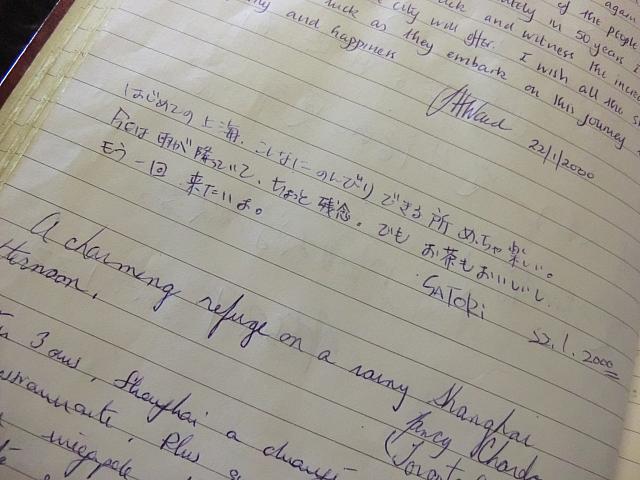 again
of the people
ately in 50 years I
ck and witness the incre
city will offer. I wish all the s
luck as they embark on this journey
and happiness
22/1/2000
はじめての上海、こんなにのんびりできる所めちゃ楽しい。
今日は雨が降っていて、ちょっと残念。でもお茶もおいしいし
もう一回来たいよ。
SATORi
22.1.2000
A charming refuge on a rainy Shanghai
ternoon.
3 ans, Shanghai a changé
Plus
mégapole